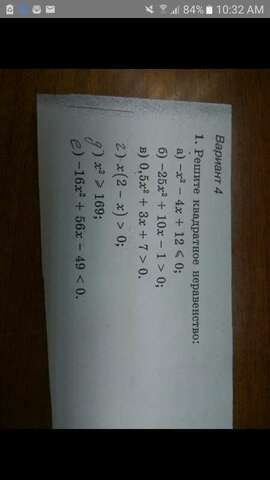 84% 10:32 AM
Вариант 4
1. Решите квадратное неравенство:
а) −x² − 4x + 12 ⩽ 0;
б) −25x² + 10x − 1 > 0;
в) 0,5x² + 3x + 7 > 0.
г) x(2 − x) > 0;
д) x² ⩾ 169;
е) −16x² + 56x − 49 < 0.